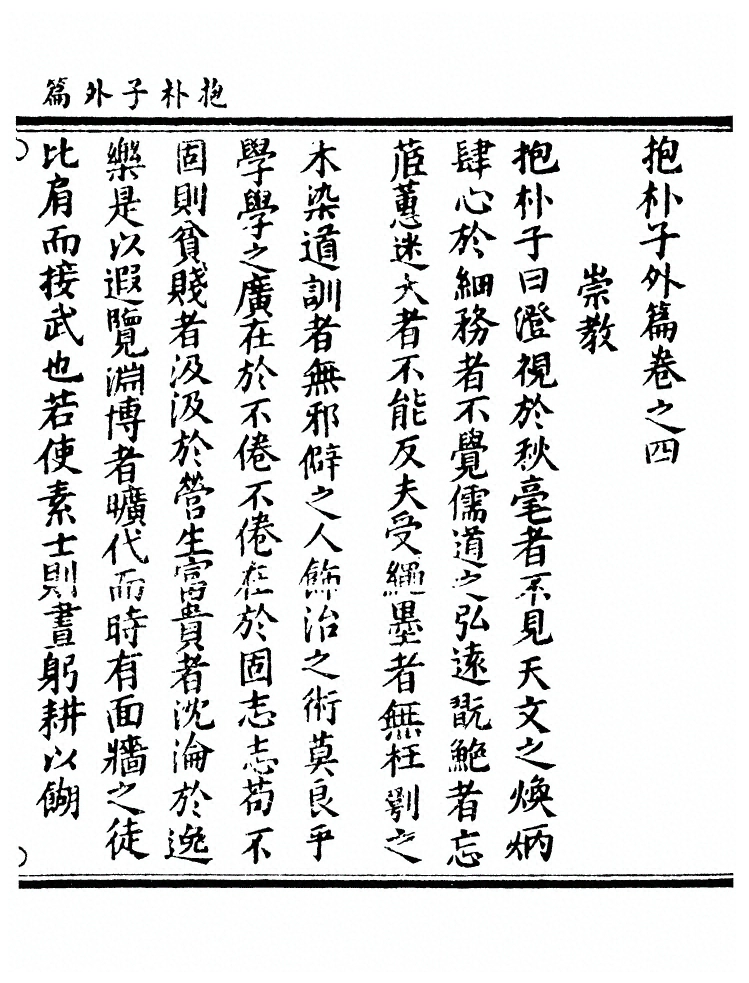 抱朴子外篇
抱朴子外篇卷之四
崇教
抱朴子曰澄視於秋毫者不見天文之煥炳
肆心於細務者不覺儒道之弘遠翫鮑者忘
茞蕙迷大者不能反夫受繩墨者無枉剶之
木染道訓者無邪僻之人飾治之術莫良乎
學學之廣在於不倦不倦在於固志志苟不
固則貧賤者汲汲於營生富貴者沈淪於逸
樂是以遐覽淵博者曠代而時有面牆之徒
比肩而接武也若使素士則晝躬耕以餬